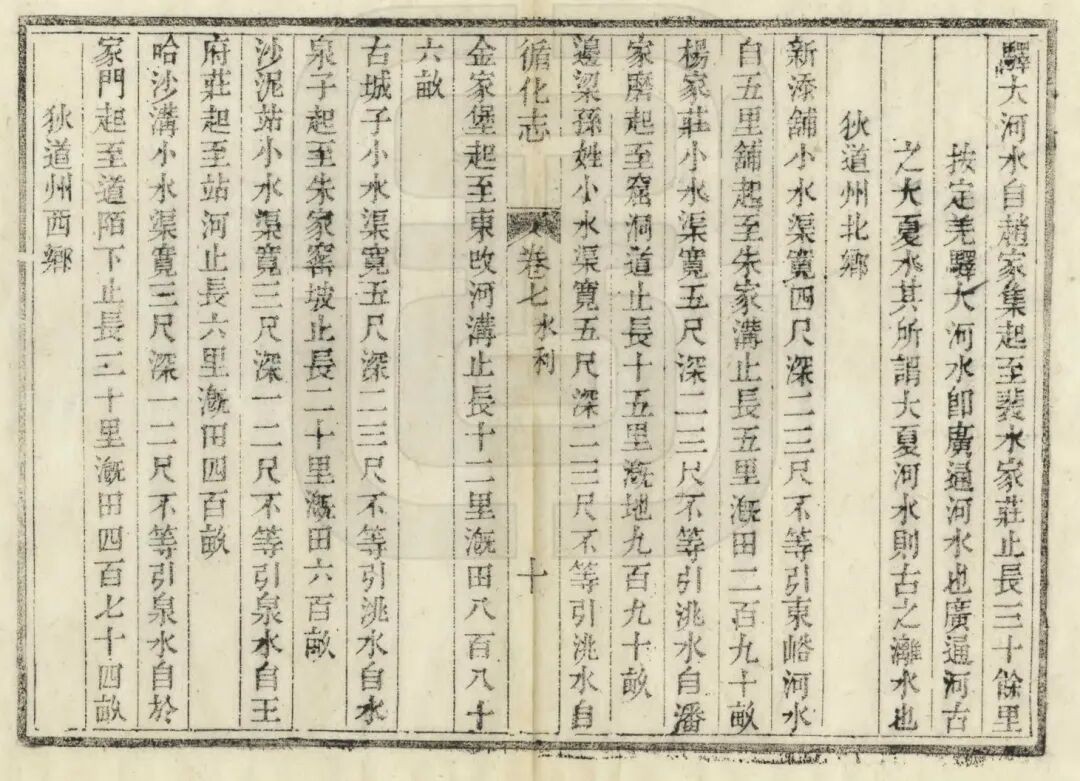 驛大河水自趙家集起至裴水家莊止長三十餘里
按定羌驛大河水卽廣通河水也廣通河古
之大夏水其所謂大夏河水則古之灕水也
狄道州北鄉
新添舖小水渠寬四尺深二三尺不等引東峪河水
自五里舖起至朱家溝止長五里漑田二百九十畝
楊家莊小水渠寬五尺深二三尺不等引洮水自潘
家磨起至窟洞道止長十五里漑地九百九十畝
邊梁孫姓小水渠寬五尺深二三尺不等引洮水自
循化志 卷七 水利 十
金家堡起至東改河溝止長十二里漑田八百八十
六畝
古城子小水渠寬五尺深二三尺不等引洮水自水
泉子起至朱家窰坡止長二十里漑田六百畝
沙泥站小水渠寬三尺深一二尺不等引泉水自王
府莊起至站河止長六里漑田四百畝
哈沙溝小水渠寬三尺深一二尺不等引泉水自於
家門起至道陌下止長二十里漑田四百七十四畝
狄道州西鄉